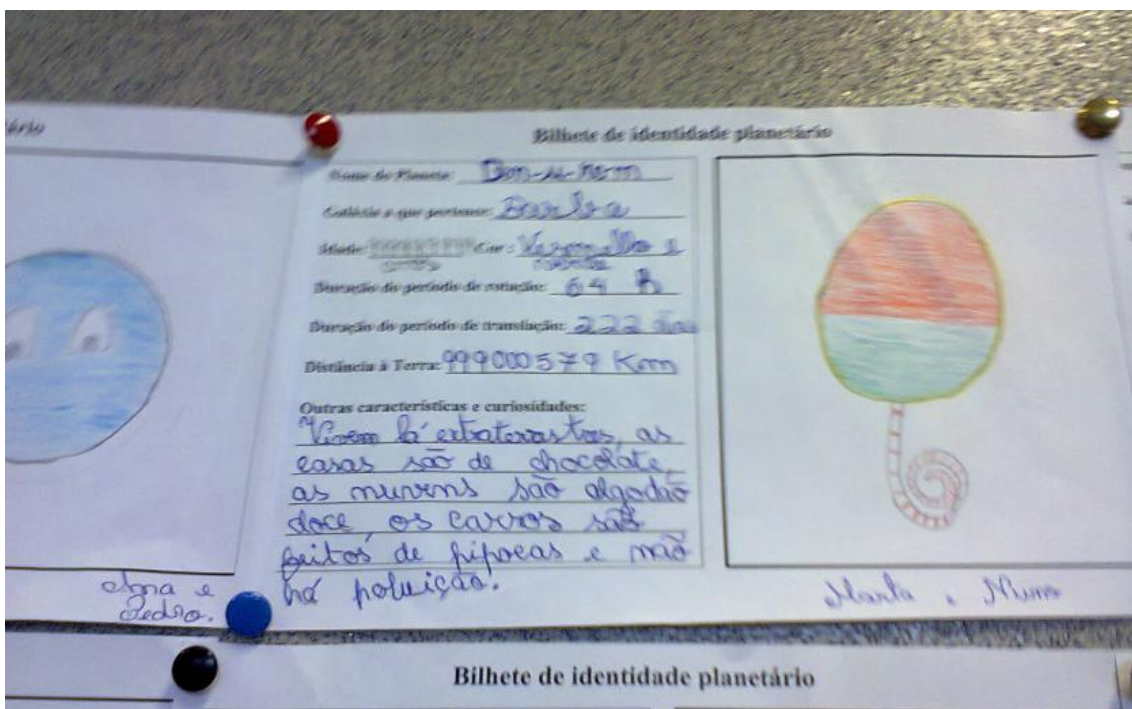 ário
Bilhete de identidade planetário
Nome do Planeta:
Galáxia a que pertence:
Idade: Cor: Vermelho e
Duração do período de rotação: 64 h
Duração do período de translação: 222 dias
Distância à Terra: 999000579 Km
Outras características e curiosidades:
Vivem lá as
casas são de chocolate,
as nuvens são algodão
doce, os carros são
feitos de pipocas e não
há poluição.
Ana e
Pedro.
Marta e Nuno
Bilhete de identidade planetário